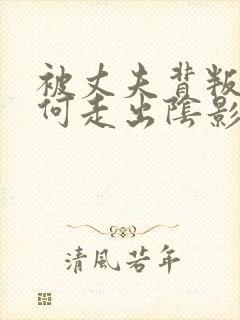 被丈夫背叛
何走出陰影
清風若年